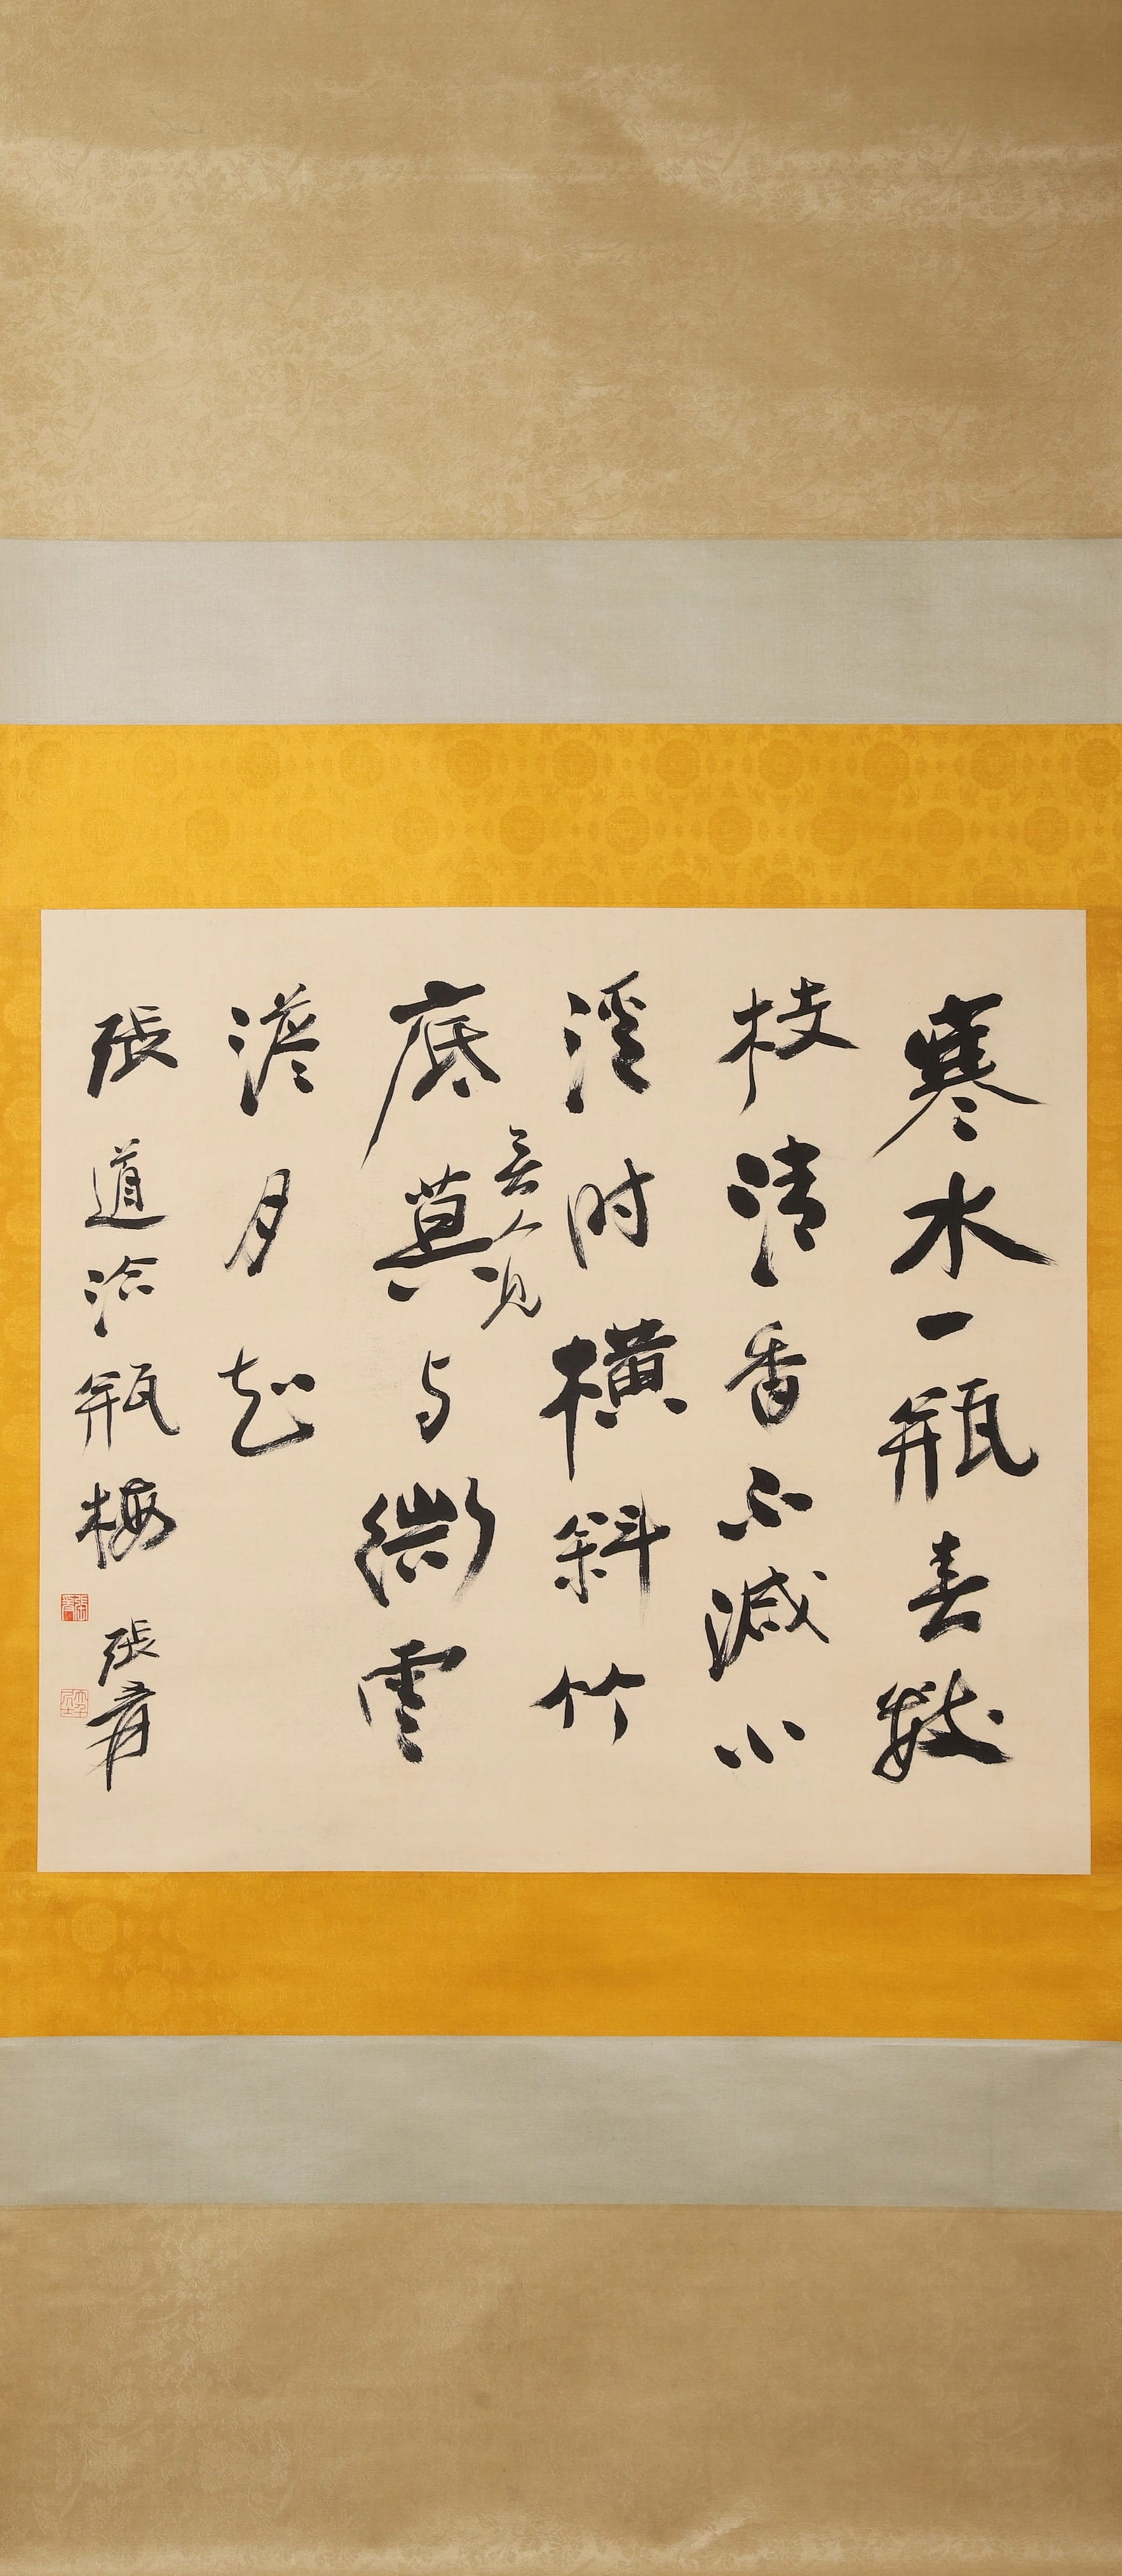 寒水一瓶春數
枝清香不減小
溪时横斜竹
底無人見
莫与微雲
澹月知
張道洽瓶梅
張爰